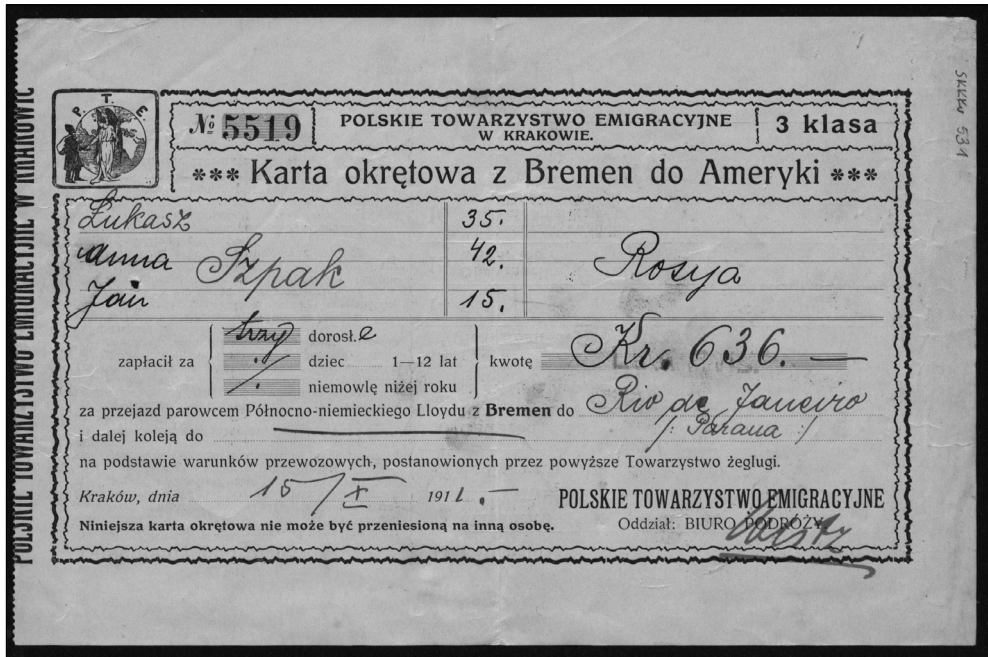 SKKKw 531
POLSKIE TOWARZYSTWO EMIGRACYJNE W KRAKOWIE
P. T. E
№ 5519
POLSKIE TOWARZYSTWO EMIGRACYJNE
W KRAKOWIE.
3 klasa
*** Karta okrętowa z Bremen do Ameryki ***
Łukasz 35.
Anna Szpak 42. Rosya
Jan 15.
zapłacił za trzy dorosł.e
dziec 1—12 lat
niemowlę niżej roku
kwotę Kr. 636.—
za przejazd parowcem Północno-niemieckiego Lloydu z Bremen do Rio de Janeiro
i dalej koleją do /: Parana :/
na podstawie warunków przewozowych, postanowionych przez powyższe Towarzystwo żeglugi.
Kraków, dnia 15/X 1911.—
POLSKIE TOWARZYSTWO EMIGRACYJNE
Oddział: BIURO PODRÓŻY
Niniejsza karta okrętowa nie może być przeniesioną na inną osobę.